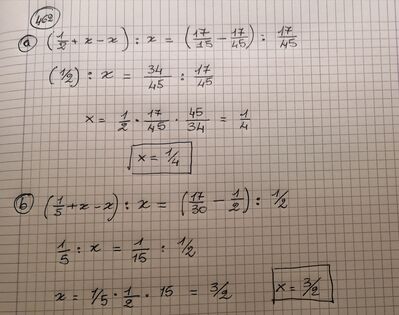 462
a (1/2 + x - x) : x = (17/15 - 17/45) : 17/45
(1/2) : x = 34/45 : 17/45
x = 1/2 · 17/45 · 45/34 = 1/4
x = 1/4
b (1/5 + x - x) : x = (17/30 - 1/2) : 1/2
1/5 : x = 1/15 : 1/2
x = 1/5 · 1/2 · 15 = 3/2 x = 3/2